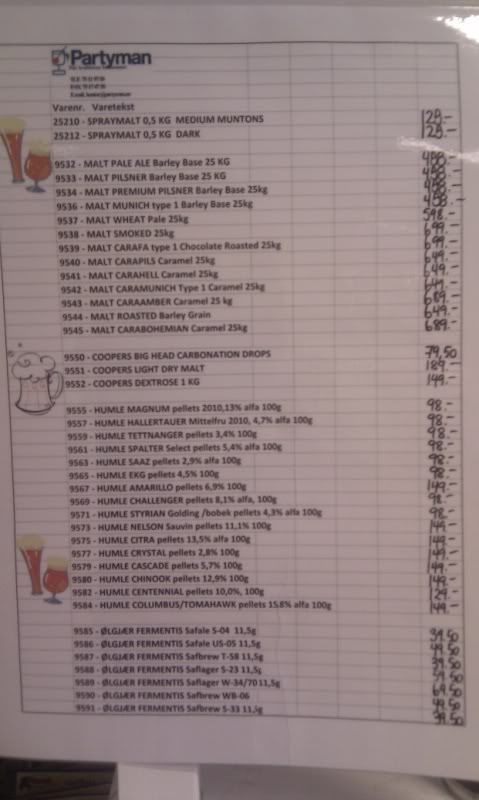 Partyman
Varenr. Varetekst
25210 - SPRAYMALT 0,5 KG MEDIUM MUNTONS 128.-
25212 - SPRAYMALT 0,5 KG DARK 128.-
9532 - MALT PALE ALE Barley Base 25 KG
9533 - MALT PILSNER Barley Base 25 KG
9534 - MALT PREMIUM PILSNER Barley Base 25kg
9536 - MALT MUNICH type 1 Barley Base 25kg
9537 - MALT WHEAT Pale 25kg 598.-
9538 - MALT SMOKED 25kg 699.-
9539 - MALT CARAFA type 1 Chocolate Roasted 25kg 699.-
9540 - MALT CARAPILS Caramel 25kg 649.-
9541 - MALT CARAHELL Caramel 25kg 649.-
9542 - MALT CARAMUNICH Type 1 Caramel 25kg 649.-
9543 - MALT CARAAMBER Caramel 25 kg 689.-
9544 - MALT ROASTED Barley Grain 649.-
9545 - MALT CARABOHEMIAN Caramel 25kg 689.-
9550 - COOPERS BIG HEAD CARBONATION DROPS 79,50
9551 - COOPERS LIGHT DRY MALT 189.-
9552 - COOPERS DEXTROSE 1 KG 149.-
9555 - HUMLE MAGNUM pellets 2010,13% alfa 100g 98.-
9557 - HUMLE HALLERTAUER Mittelfru 2010, 4,7% alfa 100g 98.-
9559 - HUMLE TETTNANGER pellets 3,4% 100g 98.-
9561 - HUMLE SPALTER Select pellets 5,4% alfa 100g 98.-
9563 - HUMLE SAAZ pellets 2,9% alfa 100g 98.-
9565 - HUMLE EKG pellets 4,5% 100g 98.-
9567 - HUMLE AMARILLO pellets 6,9% 100g 149.-
9569 - HUMLE CHALLENGER pellets 8,1% alfa, 100g 98.-
9571 - HUMLE STYRIAN Golding /bobek pellets 4,3% alfa 100g 98.-
9573 - HUMLE NELSON Sauvin pellets 11,1% 100g 149.-
9575 - HUMLE CITRA pellets 13,5% alfa 100g 149.-
9577 - HUMLE CRYSTAL pellets 2,8% 100g 149.-
9579 - HUMLE CASCADE pellets 5,7% 100g 149.-
9580 - HUMLE CHINOOK pellets 12,9% 100g 149.-
9582 - HUMLE CENTENNIAL pellets 10,0%, 100g 129.-
9584 - HUMLE COLUMBUS/TOMAHAWK pellets 15,8% alfa 100g 149.-
9585 - ØLGJÆR FERMENTIS Safale S-04 11,5g 39.50
9586 - ØLGJÆR FERMENTIS Safale US-05 11,5g 49.50
9587 - ØLGJÆR FERMENTIS Safbrew T-58 11,5g 39.50
9588 - ØLGJÆR FERMENTIS Saflager S-23 11,5g 59.50
9589 - ØLGJÆR FERMENTIS Saflager W-34/70 11,5g 69.50
9590 - ØLGJÆR FERMENTIS Safbrew WB-06 49.50
9591 - ØLGJÆR FERMENTIS Safbrew S-33 11,5g 39.50